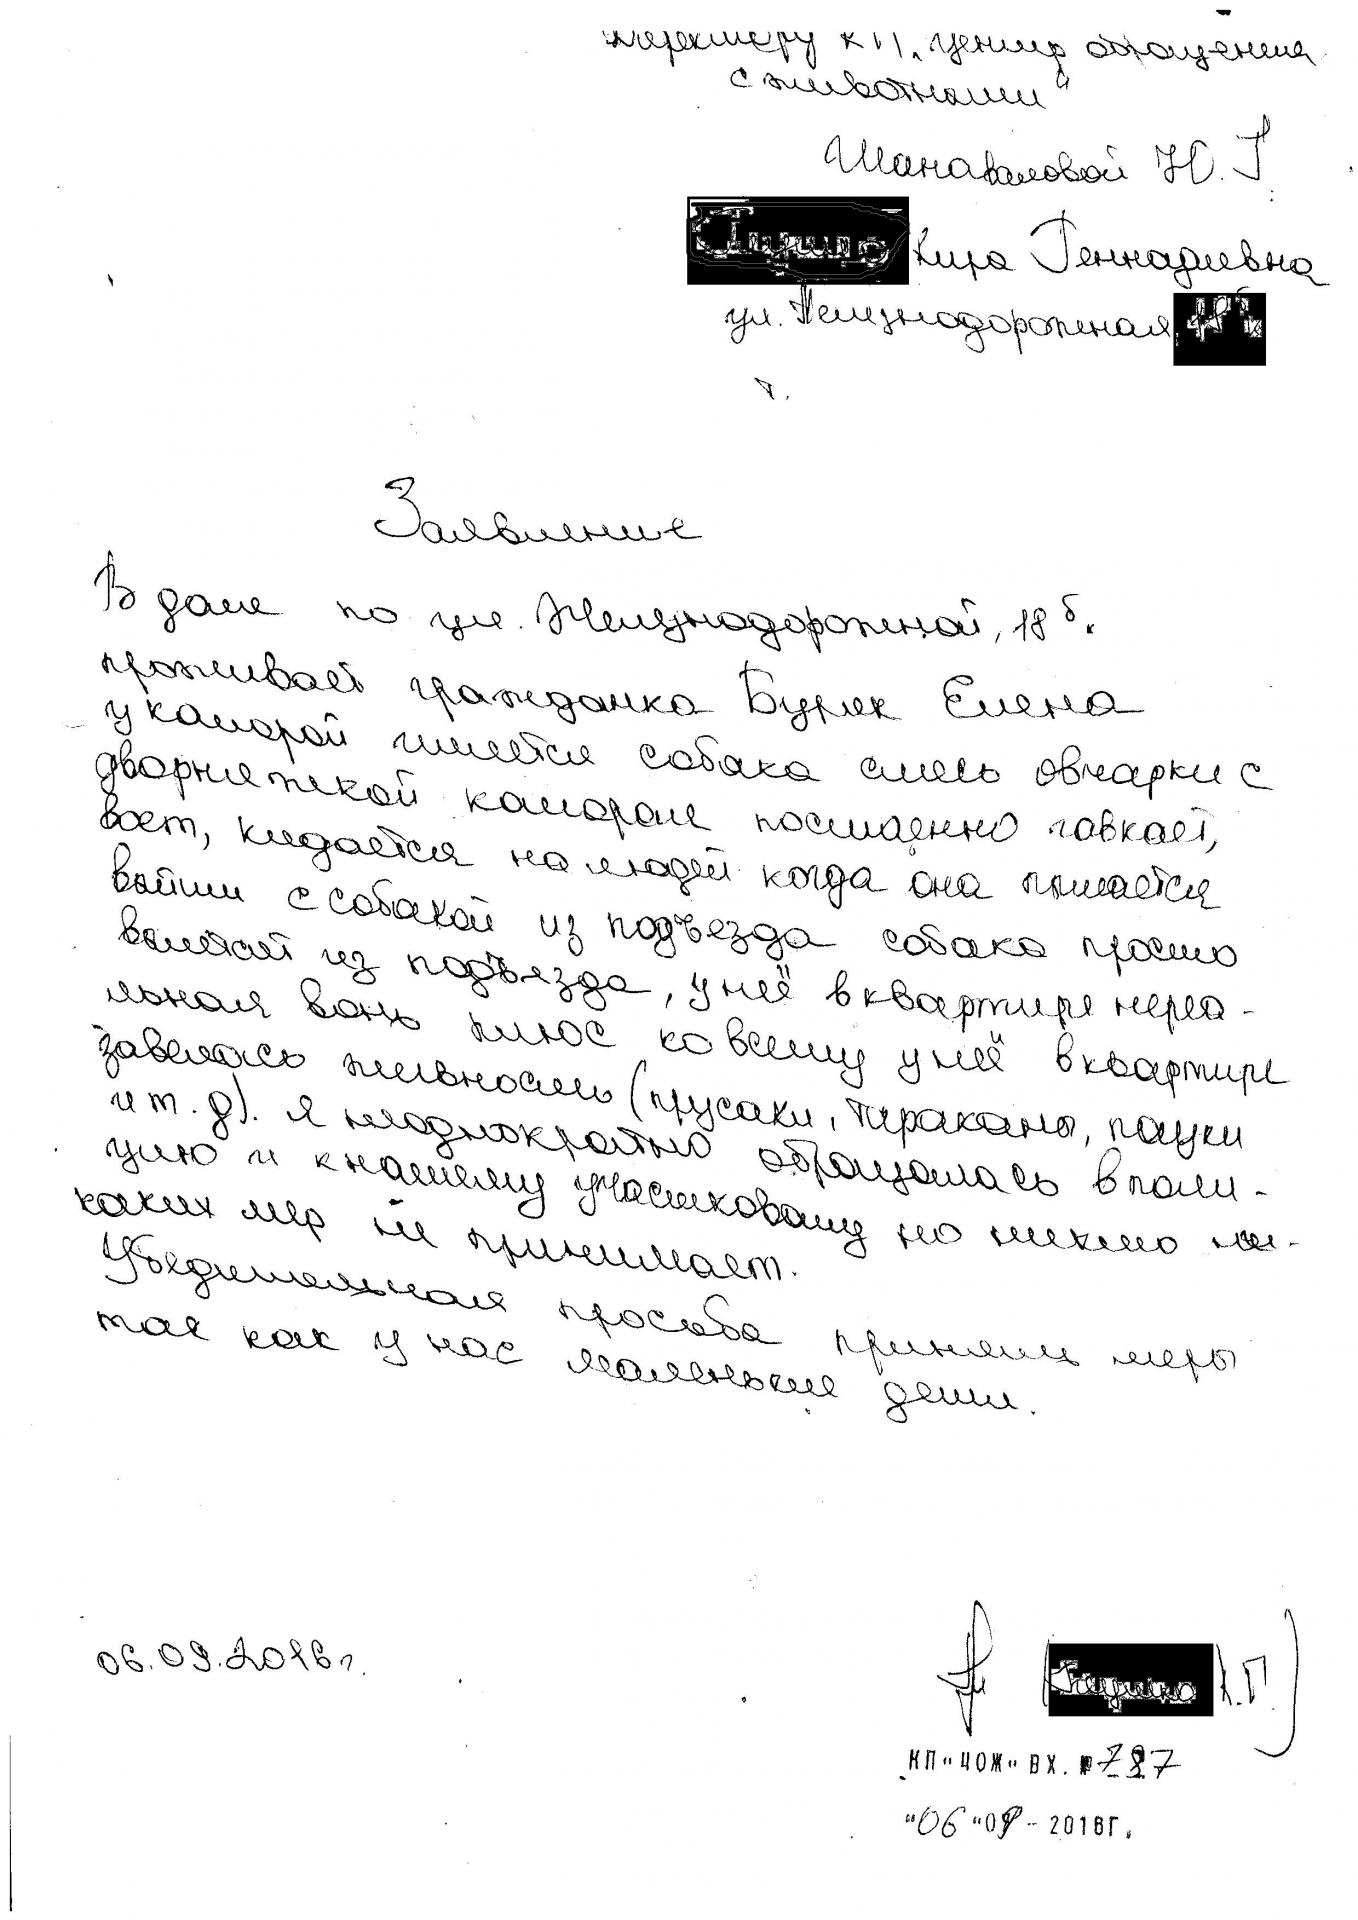 Директору КП "Центр обращения
с животными"
Шаповаловой Ю. Г.
Кира Геннадиевна
ул. Железнодорожная,
Заявление
В доме по ул. Железнодорожной, 18 б.
проживает гражданка Буряк Елена
у каторой имеется собака смесь овчарки с
дворняжкой каторая постаенно гавкает,
воет, кидается на людей когда она пытается
выйти с собакой из подъезда собака просто
вылетает из подъезда, у неё в квартире нереа-
льная вонь плюс ко всему у неё в квартире
завелась живность (прусаки, тараканы, пауки
и т. д). Я неоднократно обращалась в поли-
цию и к нашему участковому но никто ни-
каких мер не принимает.
Убедительная просьба принять меры
так как у нас маленькие дети.
06.09.2016 г.
К.Г.)
КП "ЦОЖ" ВХ. № 787
"06" 09 - 2016Г.